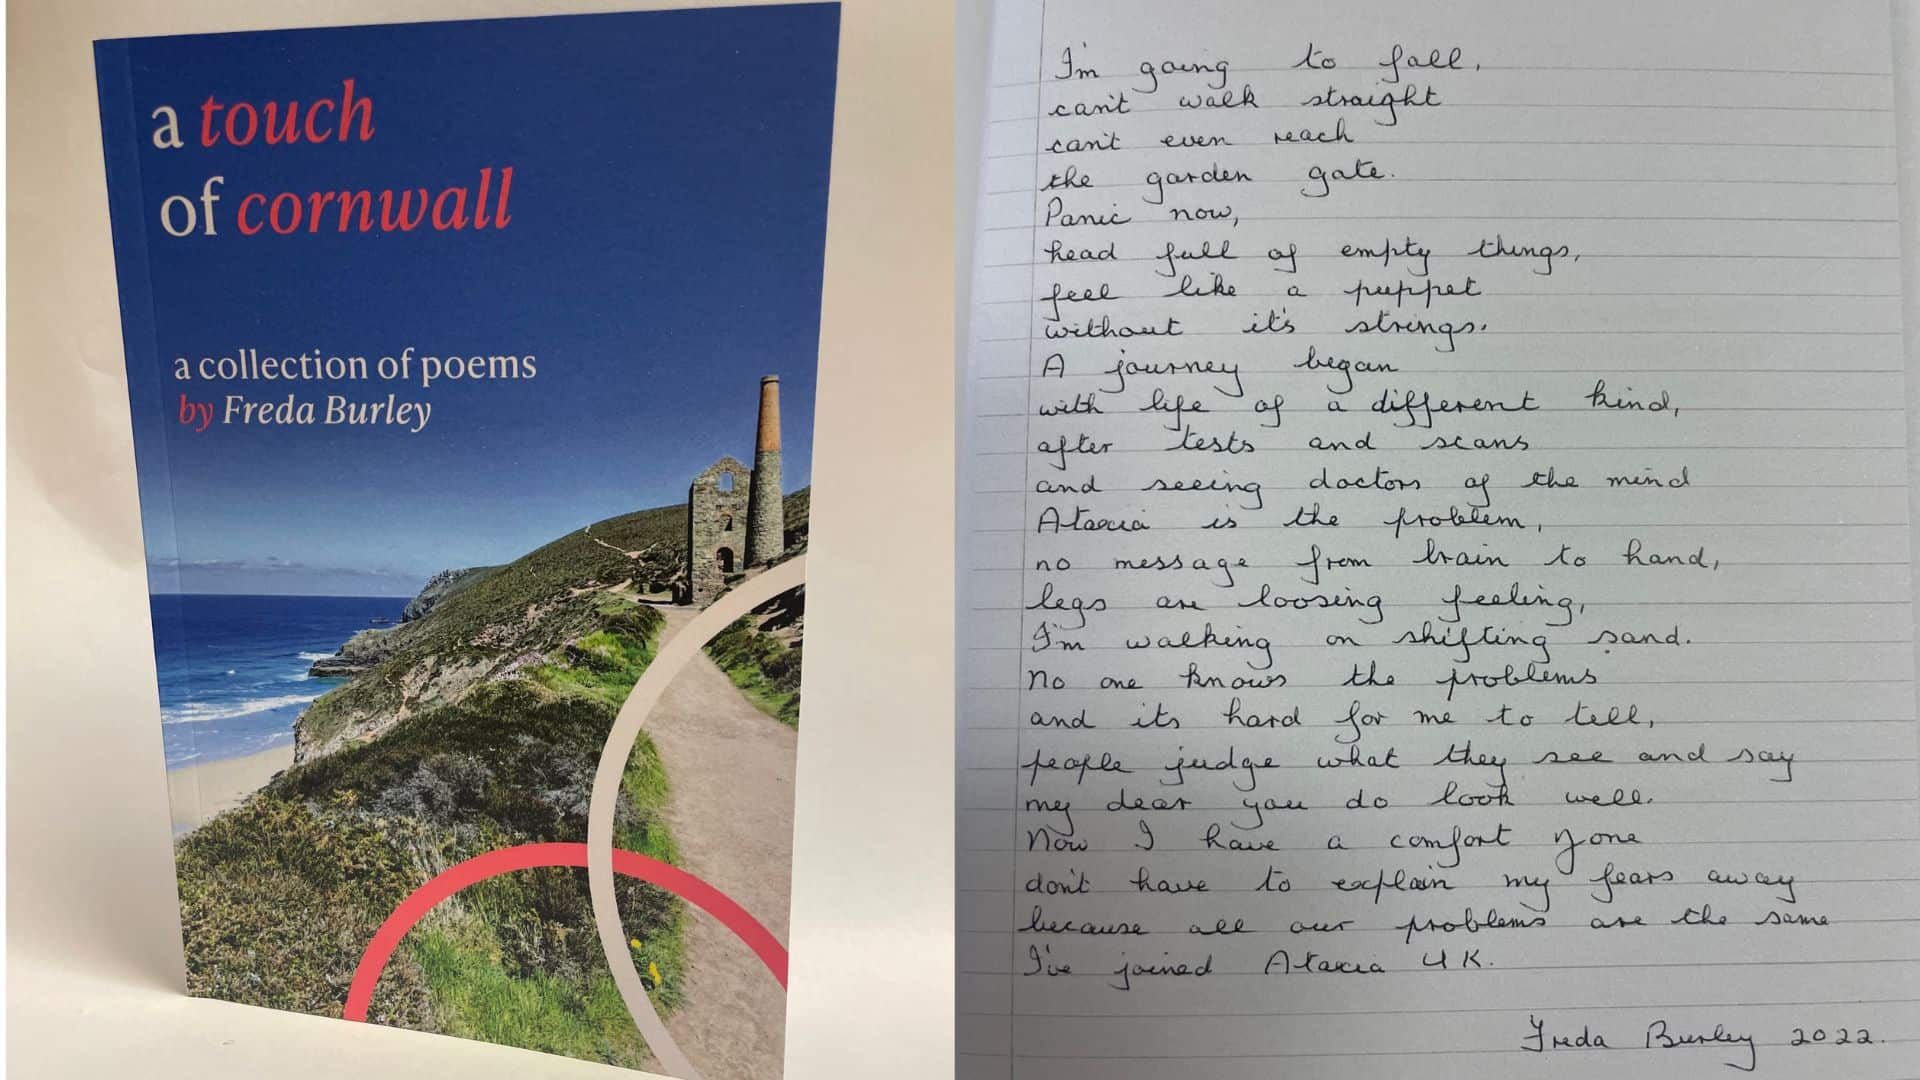 a touch
of cornwall
a collection of poems
by Freda Burley
I'm going to fall,
can't walk straight
can't even reach
the garden gate.
Panic now,
head full of empty things,
feel like a puppet
without it's strings.
A journey began
with life of a different kind,
after tests and scans
and seeing doctors of the mind
Ataxia is the problem,
no message from brain to hand,
legs are loosing feeling,
I'm walking on shifting sand.
No one knows the problems
and its hard for me to tell,
people judge what they see and say
my dear you do look well.
Now I have a comfort zone
don't have to explain my fears away
because all our problems are the same
I've joined Ataxia UK.
Freda Burley 2022.